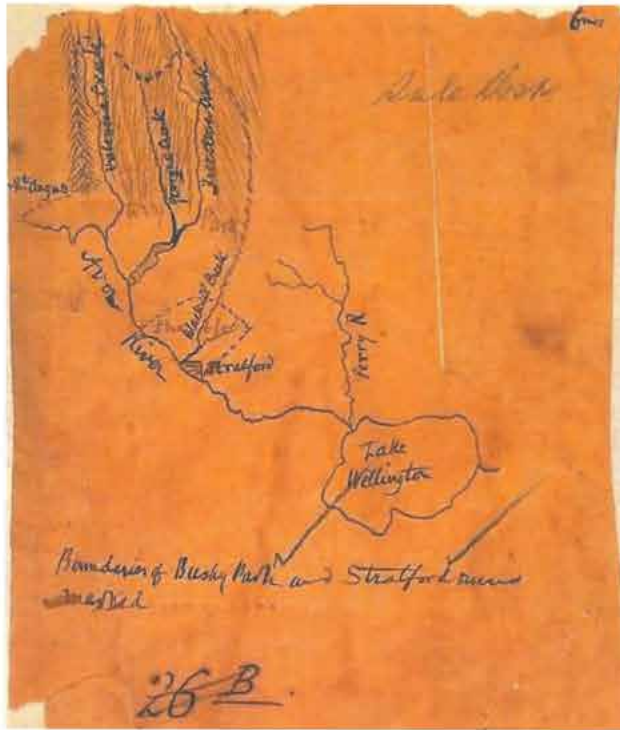 6
Sale
Valencia Creek
Creek
Freestone Creek
Mt Angus
Blackall Creek
River
Stratford
Perry R
Lake
Wellington
Boundaries of Bushy Park and Stratford runs
marked
26 B.